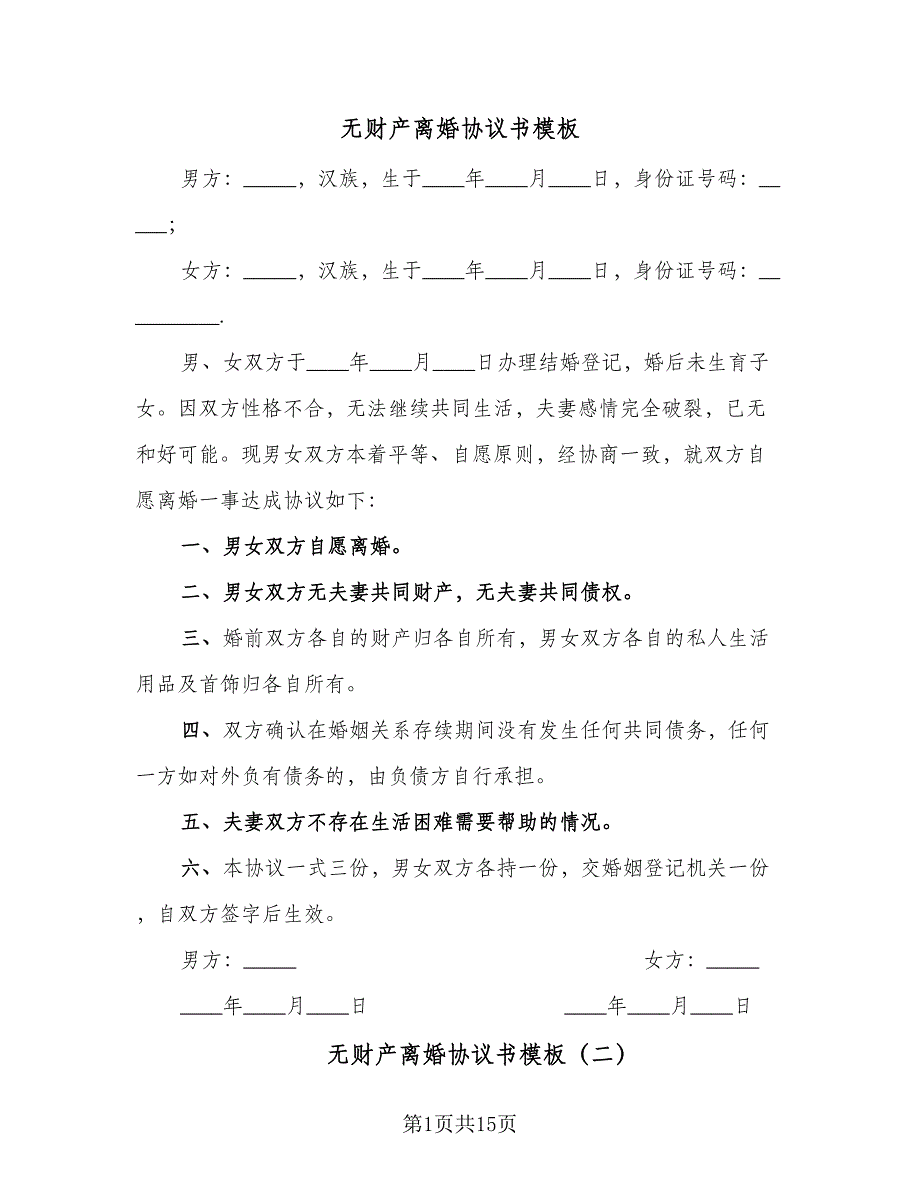 无财产离婚协议书模板
男方：_____，汉族，生于____年____月____日，身份证号码：__
___；
女方：_____，汉族，生于____年____月____日，身份证号码：__
________.
男、女双方于____年____月____日办理结婚登记，婚后未生育子
女。因双方性格不合，无法继续共同生活，夫妻感情完全破裂，已无
和好可能。现男女双方本着平等、自愿原则，经协商一致，就双方自
愿离婚一事达成协议如下：
一、男女双方自愿离婚。
二、男女双方无夫妻共同财产，无夫妻共同债权。
三、婚前双方各自的财产归各自所有，男女双方各自的私人生活
用品及首饰归各自所有。
四、双方确认在婚姻关系存续期间没有发生任何共同债务，任何
一方如对外负有债务的，由负债方自行承担。
五、夫妻双方不存在生活困难需要帮助的情况。
六、本协议一式三份，男女双方各持一份，交婚姻登记机关一份
，自双方签字后生效。
男方：_____ 女方：_____
____年____月____日 ____年____月____日
无财产离婚协议书模板（二）
第1页共15页